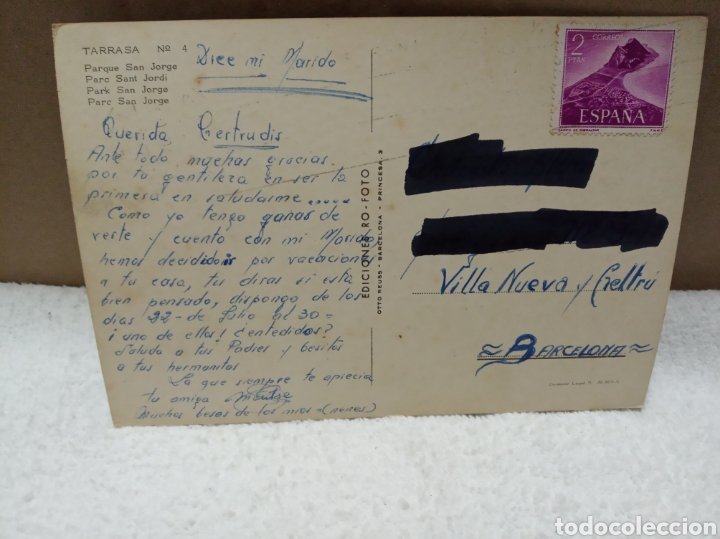 TARRASA Nº 4
Parque San Jorge
Parc Sant Jordi
Park San Jorge
Parc San Jorge
Dice mi Marido
Querida Gertrudis
Ante todo muchas gracias
por tu gentileza en ser la
primera en saludarme.....
Como yo tengo ganas de
verte y cuento con mi Marido
hemos decidido ir por vacacion
a tu casa, tu diras si esta
bien pensado, dispongo de los
dias 22 de Julio al 30=
¡uno de ellos! Centedidos?
Saludo a tus Padres y besitos
a tus hermanitos
La que siempre te aprecia
tu amiga
Muchos besos de los mios=(nenas)
EDICIONES RO-FOTO
OTTO REUSS - BARCELONA - PRINCESA, 3
2
PTAS
CORREOS
ESPAÑA
Villa Nueva y Geltrú
≈ BARCELONA ≈
todocoleccion